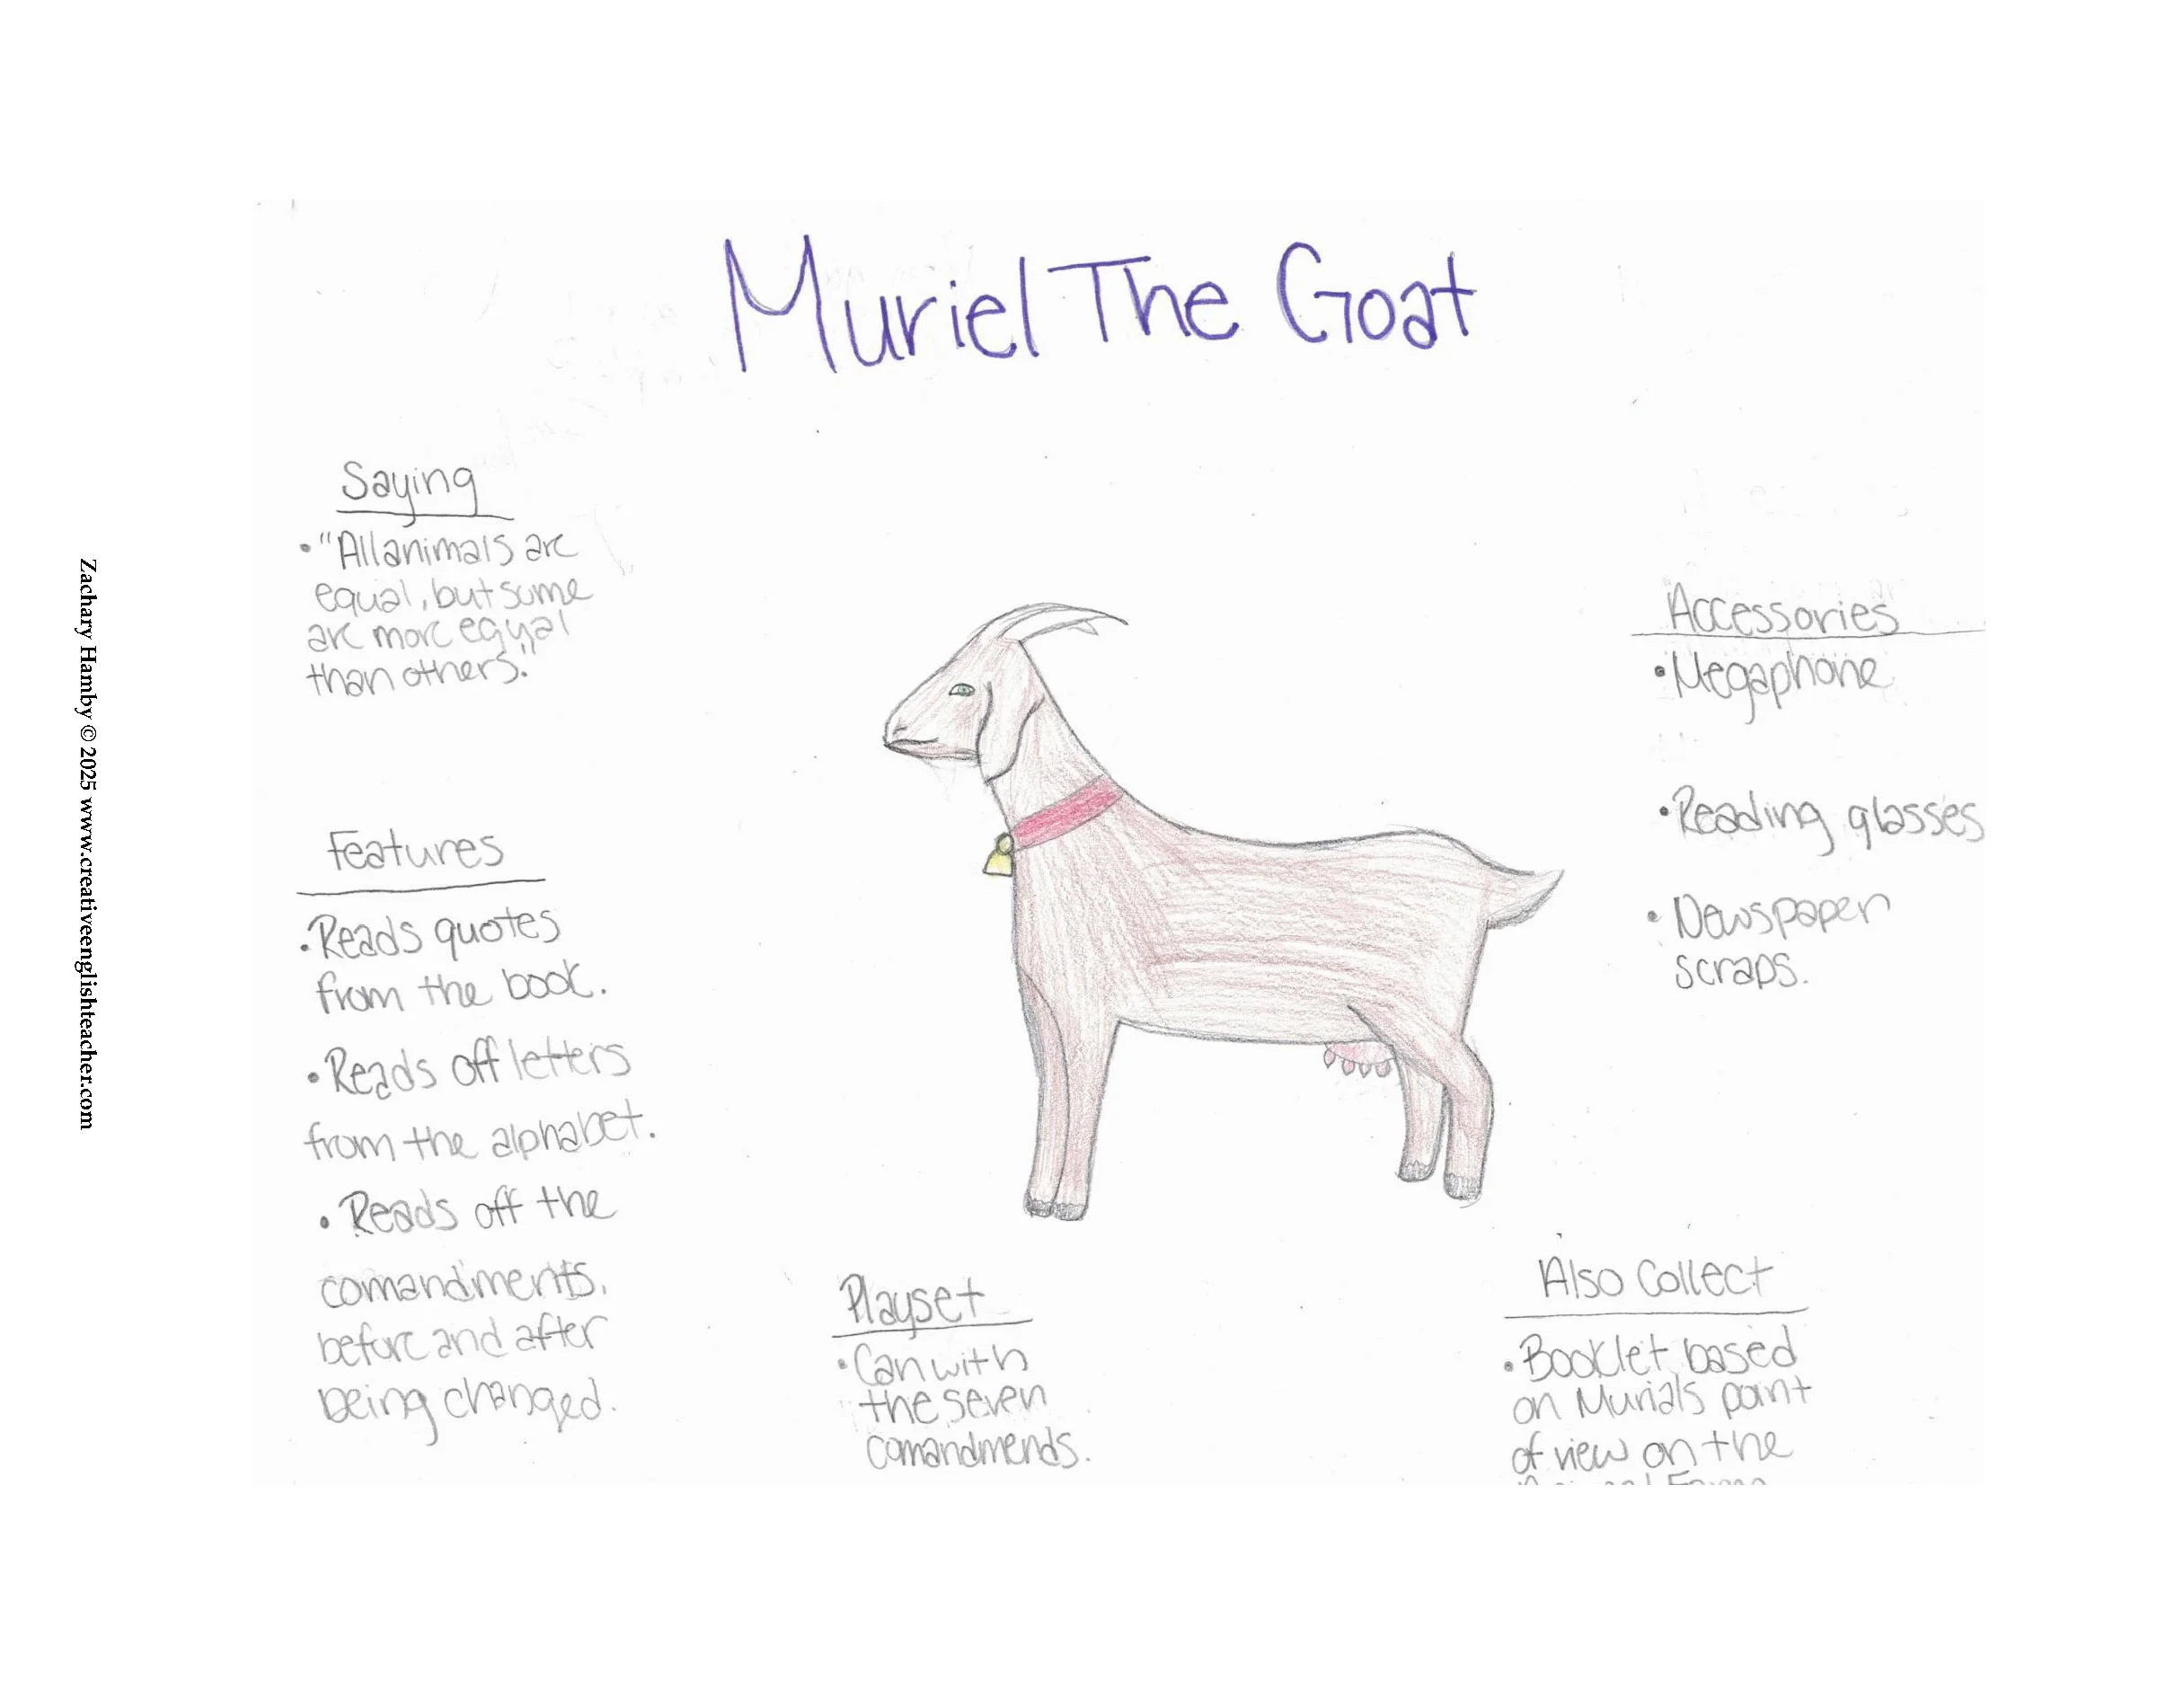 Muriel The Goat
Saying
• "All animals are
equal, but some
are more equal
than others."
Features
• Reads quotes
from the book.
• Reads off letters
from the alphabet.
• Reads off the
comandments,
before and after
being changed.
Accessories
• Megaphone
• Reading glasses
• Newspaper
scraps.
Playset
• Can with
the seven
comandmends.
Also Collect
• Booklet based
on Murials point
of view on the
Zachary Hamby © 2025 www.creativeenglishteacher.com